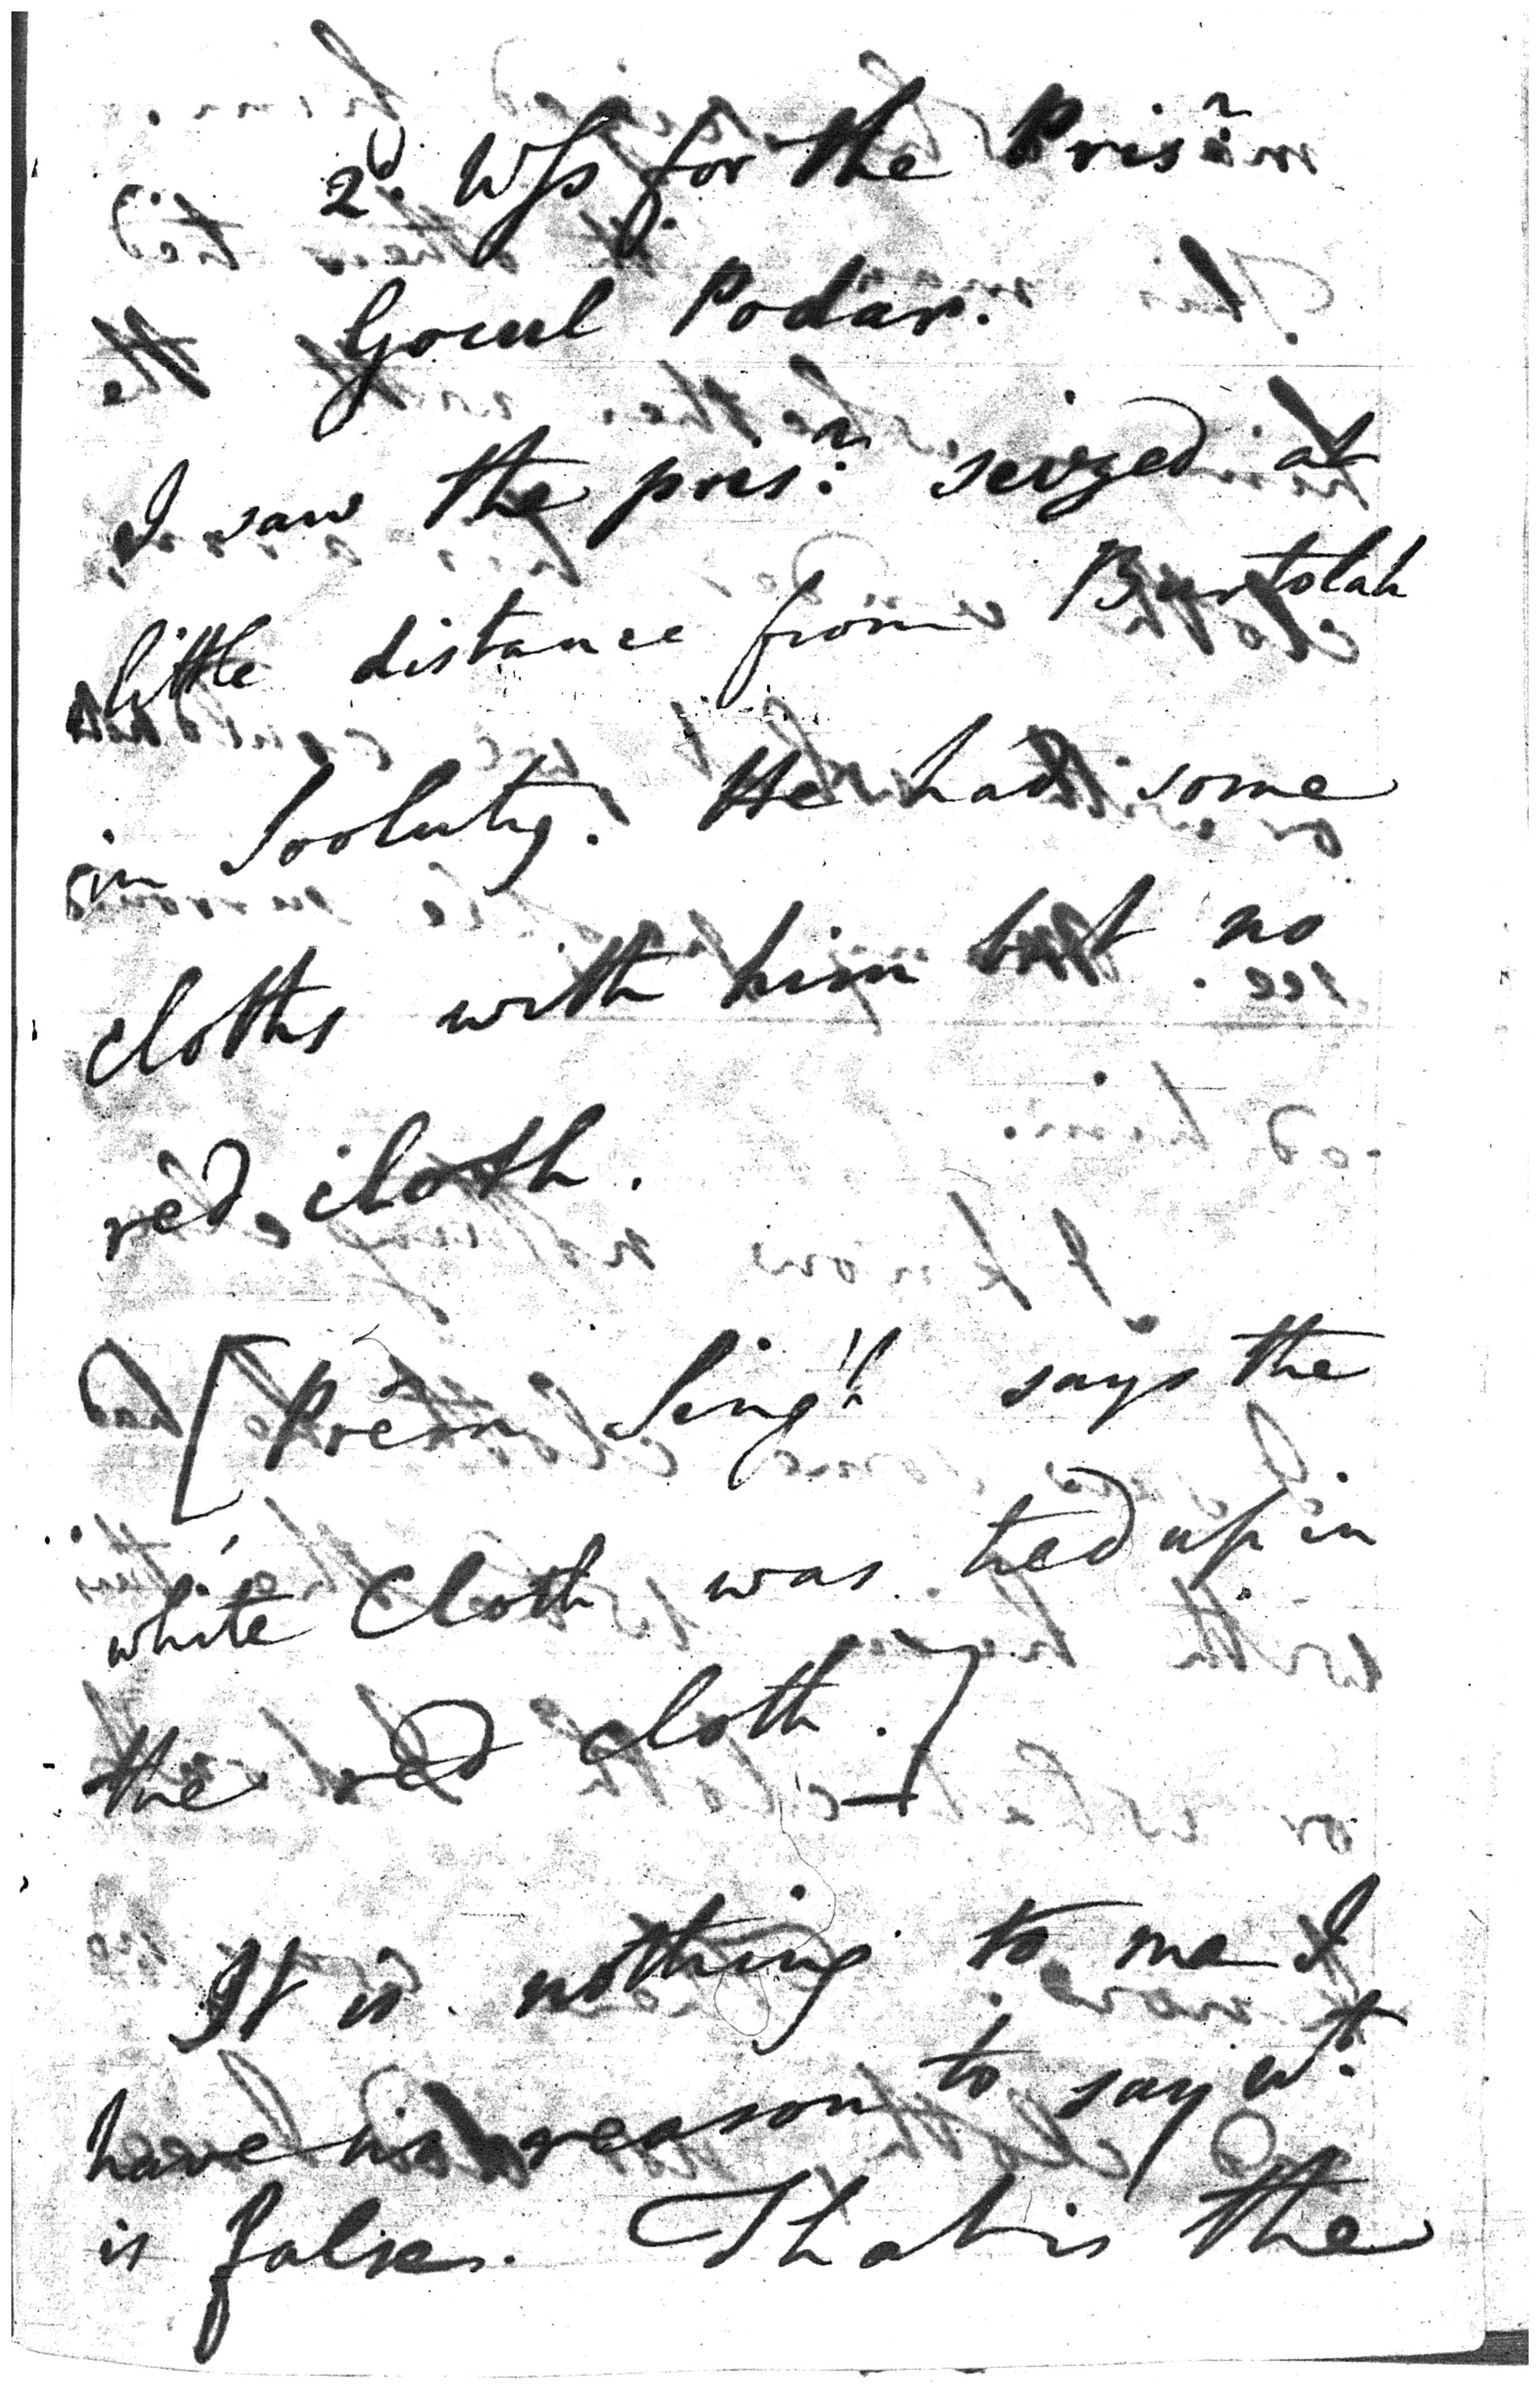 2d. Wss for the Prisr
Gocul Podar.
I saw the prisr. seized at
little distance from Burtolah
in Sooluty. He had some
cloths with him but no
red cloth.
[Prem Singh says the
white Cloth was tied up in
the red cloth.]
It is nothing to me I
have no reason to say wt.
is false. That is the